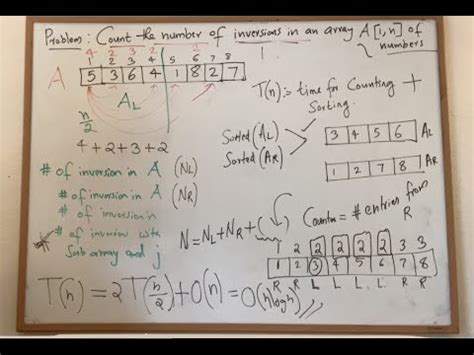 Problem: Count the number of inversions in an array A[1,n] of numbers
4 2 3 2 2
1 2 3 4 5 6 7 8
A 5 3 6 4 1 8 2 7
A_L
n/2
4+2+3+2
T(n):= time for Counting + Sorting
Sorted(A_L)
Sorted(A_R)
3 4 5 6 A_L
1 2 7 8 A_R
# of inversion in A (N_L)
# of inversion in A (N_R)
# of inversion in
# of inversion with
Sub array and j
N=N_L+N_R+( )
Counter = # entries from R
1 2 2 2 2 2 3 3
1 2 3 4 5 6 7 8
R R L L L L R R
T(n)=2T(n/2)+O(n)=O(n log n)